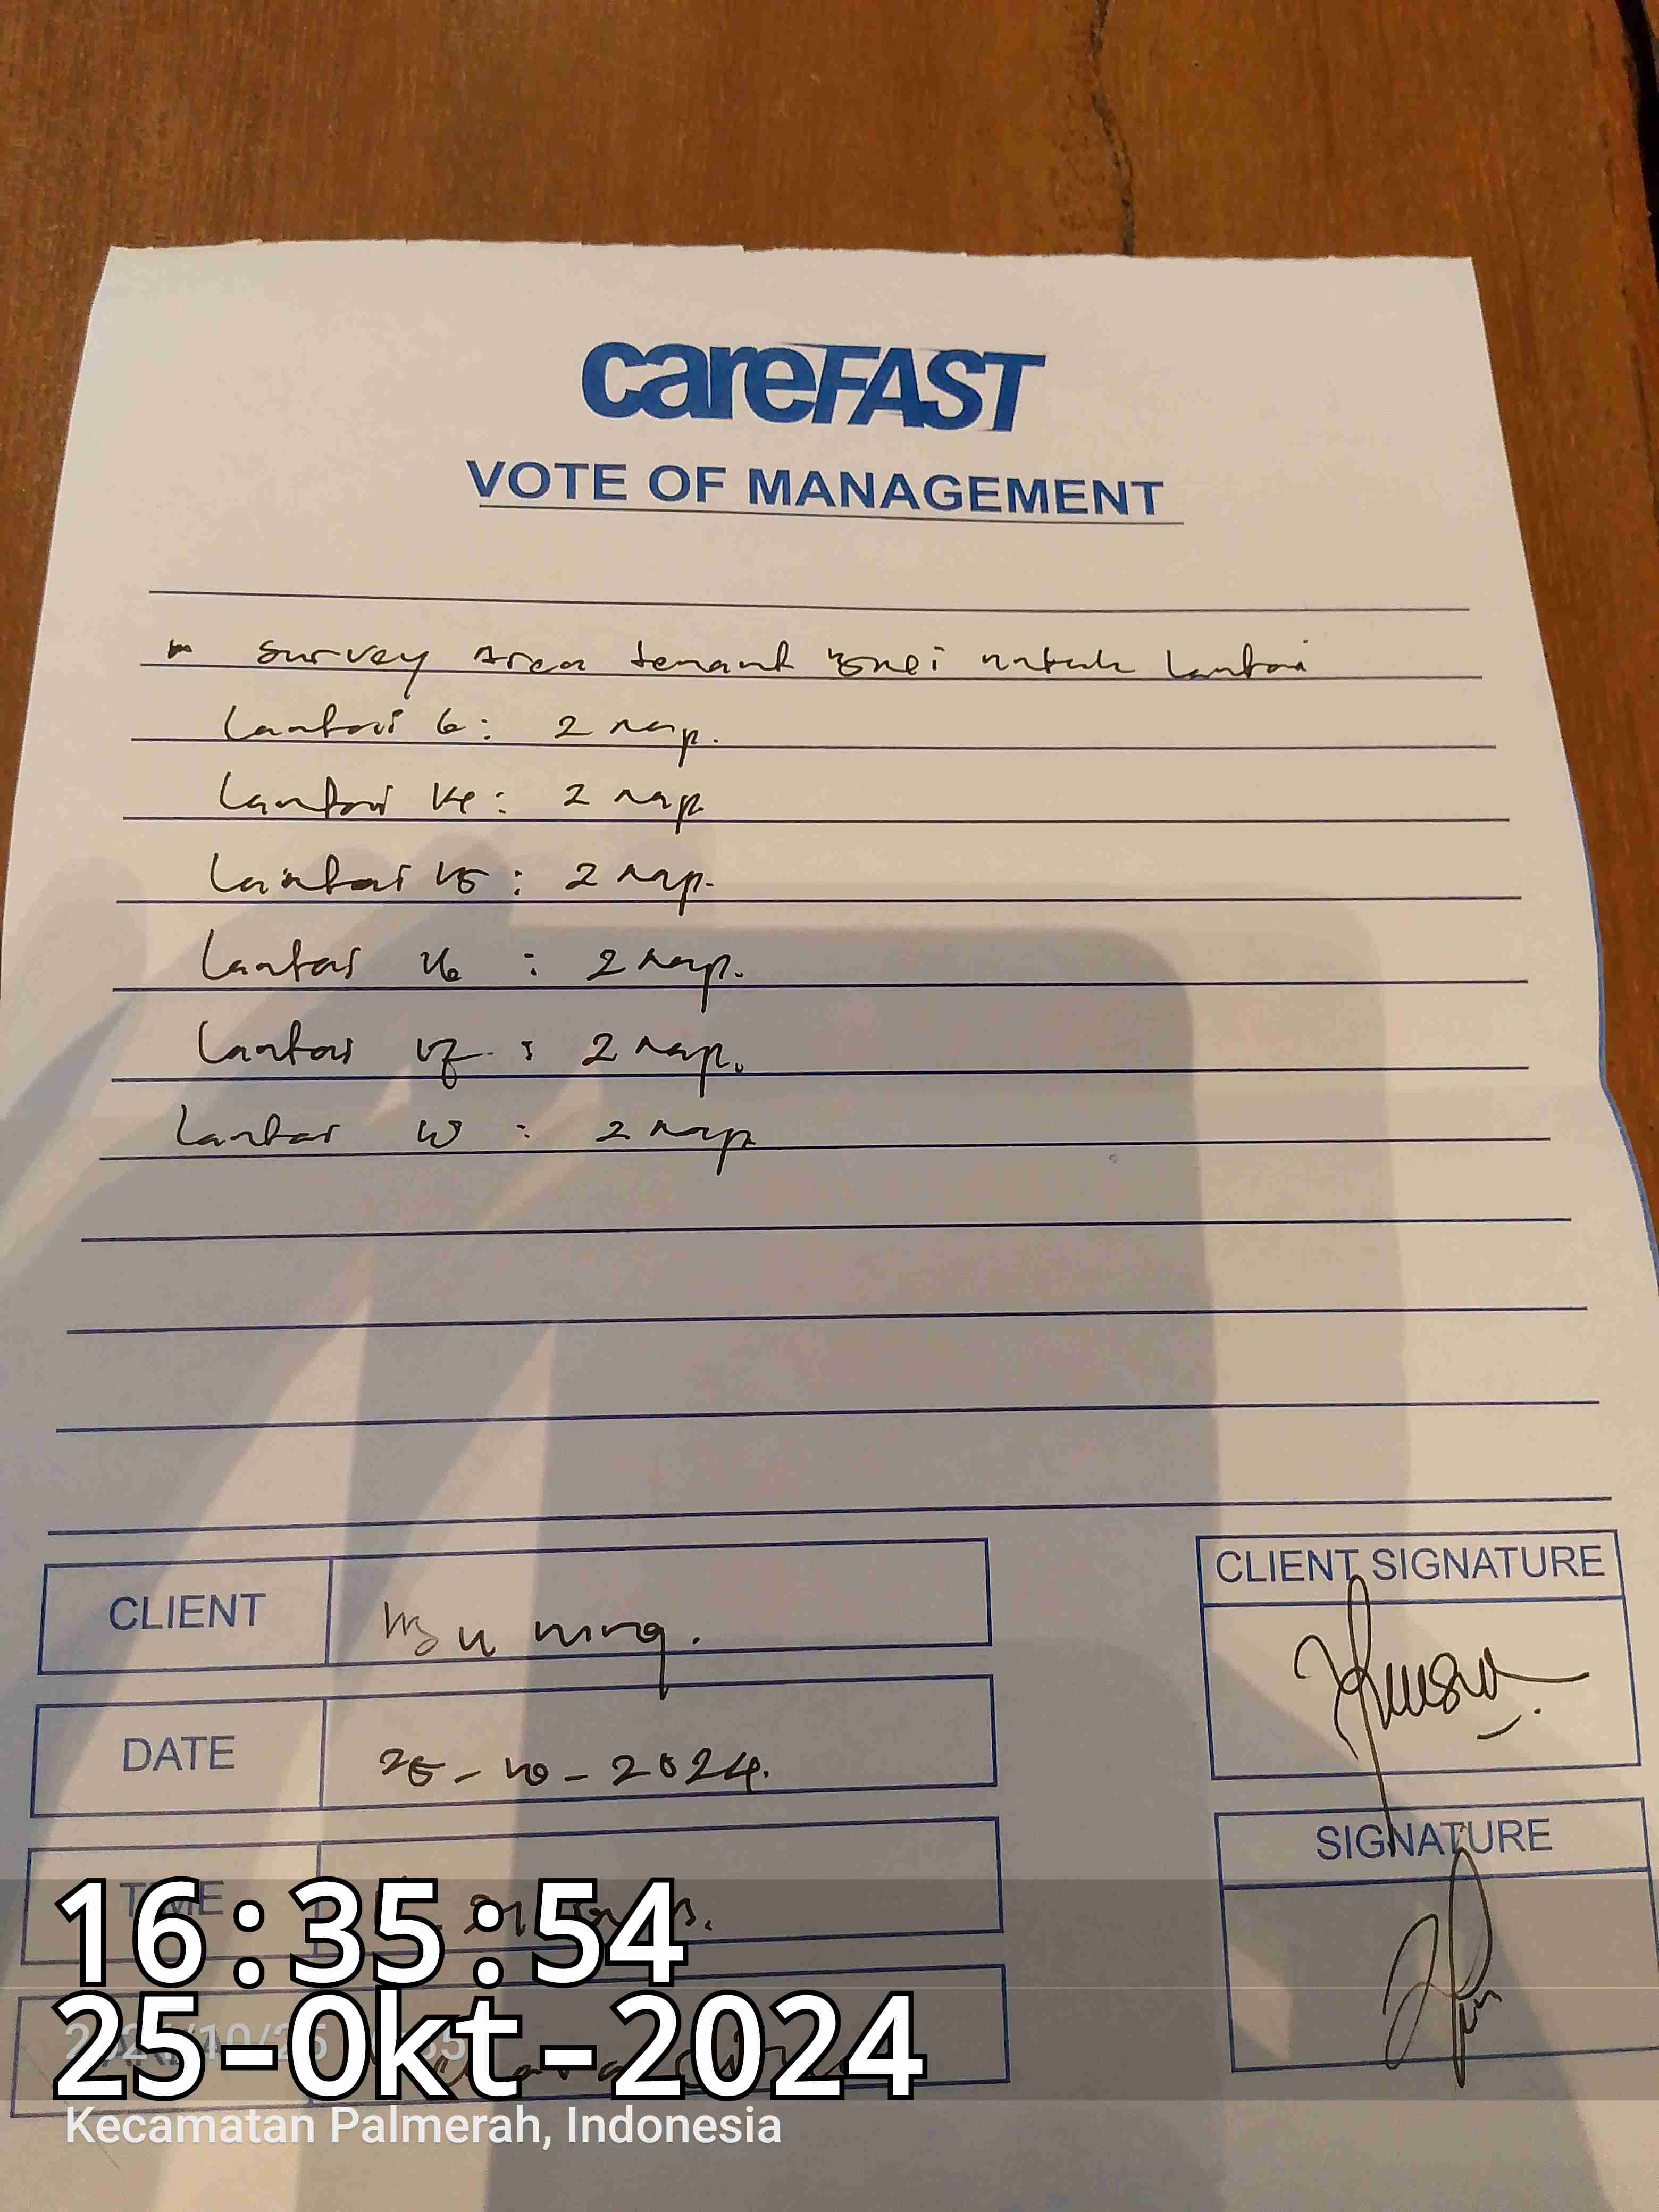 careFAST
VOTE OF MANAGEMENT
Survey Area tenant untuk Lantai
Lantai 6: 2 rap.
Lantai 14: 2 rap
Lantai 15: 2 rap.
Lantai 16: 2 rap.
Lantai 17: 2 rap.
Lantai : 2 rap
CLIENT
CLIENT SIGNATURE
DATE
25-10-2024.
TIME
SIGNATURE
16:35:54
25-Okt-2024
Kecamatan Palmerah, Indonesia